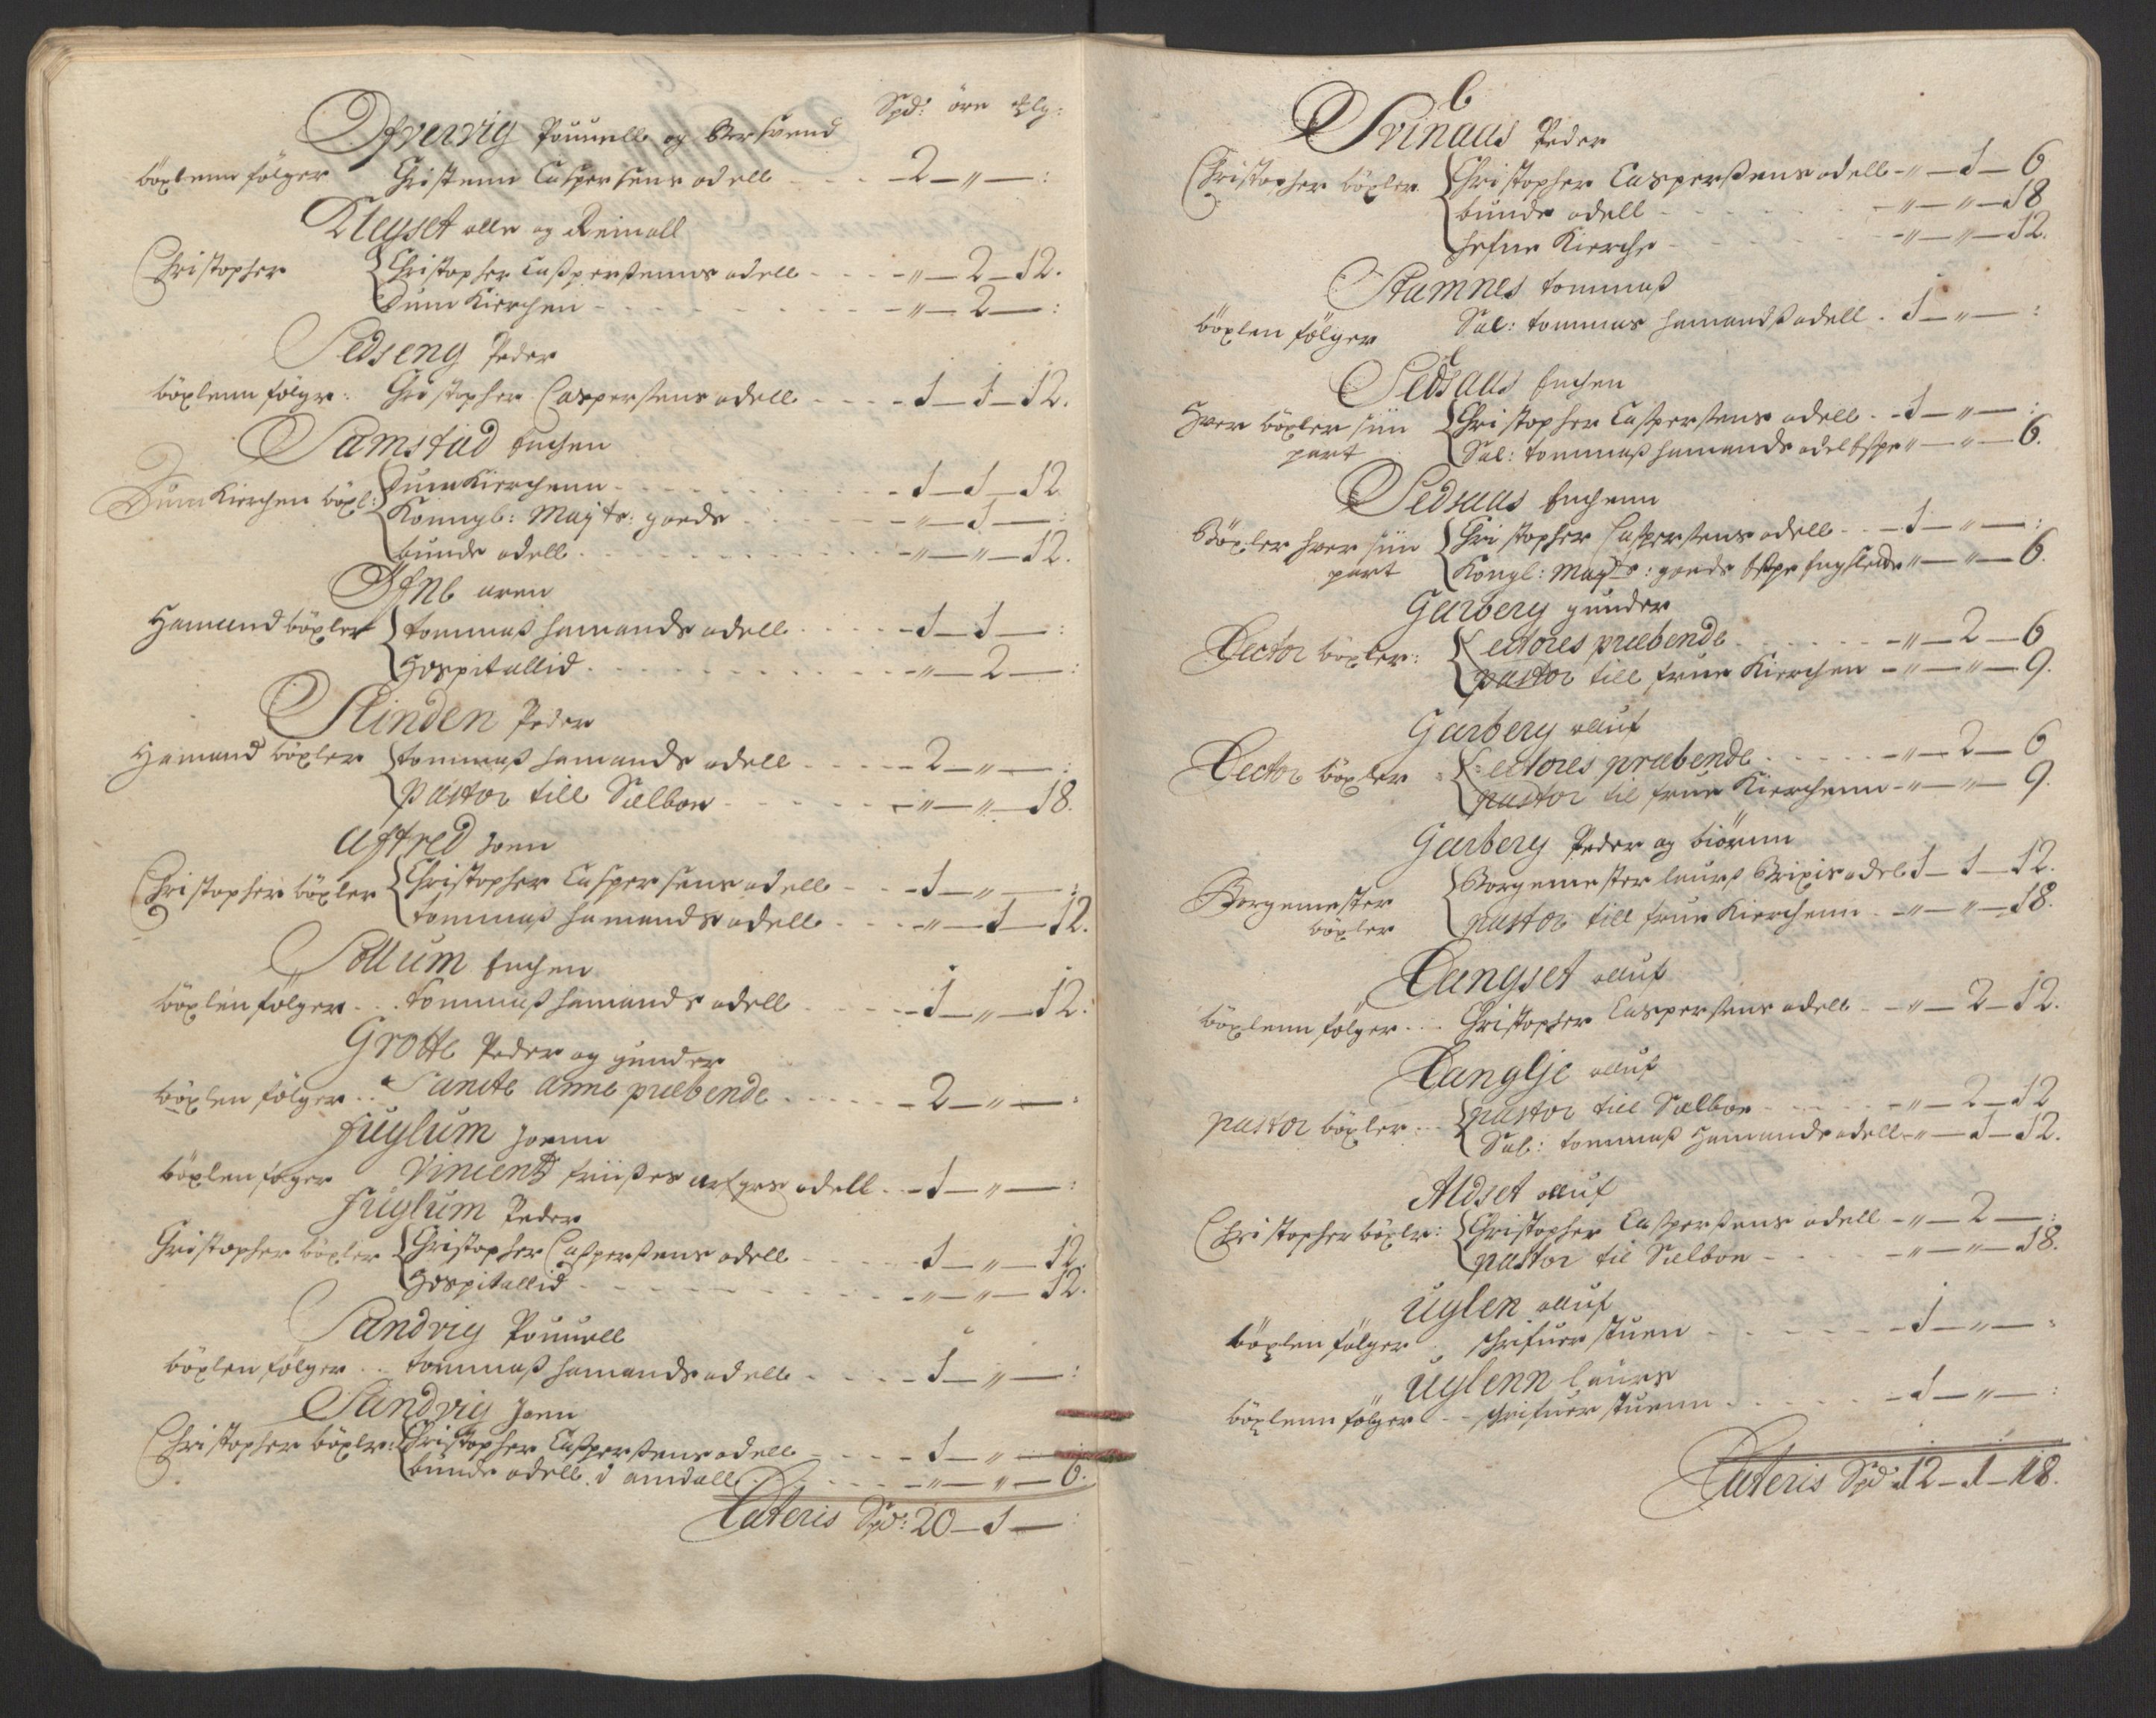 Spd: öre mlg:
Ofvervig Pouuell og Bersvend
böxlenn fölger Christenn Caspersens odell - - 2 — „ — :
Kleyset olle og Reinoll
Christopher { Christopher Casperssenns odell - - - „ — 2 — 12.
Dum Kierchen - - - - „ — 2 — :
Sedseng Peder
böxlenn følgr: Christopher Casperssens odell - - - 1 — 1 — 12.
Samstad Enchen
Dum Kierchen böxl: { Dum Kierchenn - - - 1 — 1 — 12
Konngl: Mayts: goeds - - - „ — 1 — :
bunde odell - - - „ — „ — 12.
Ofne aren
Hamund böxler { tommaß hamands odell - - - 1 — 1 — :
Hospitallid - - - „ — 2 — :
Slinden Peder
Hamand böxler { tommaß hamands odell - - - 2 — „ — :
Pastor till Sælboe - - - „ — „ — 18.
Uftred Joen
Christopher böxler { Christopher Caspersens odell - - 1 — „ — :
tommaß hamands odell - - - „ — 1 — 12.
Sollum Enchen
böxlen fölger . . tommaß hamands odell - - 1 — „ — 12:
Grotte Peder og gunder
böxlen fölger . . Sancte anne præbende - - - 2 — „ — :
Fuglum Joenn
böxlenføger Vincentz friißes arfges odell - - 1 — „ — :
Fuglum Peder
Christopher böxler { Christopher Casperssens odell - - - 1 — „ — 12.
Hospitallid - - - „ — „ — 12.
Sandvig Pouuell
böxlen fölger . . tommaß hamands odell - - - 1 — „ — :
Sandvig Joen
Christopher böxler: { Christopher Casperssens odell - - - 1 — „ — :
bunde odell i amdall - - - „ — „ — 6.
Lateris Spd: 20 — 1 — :
Svinaas Peder
Christopher böxler { Christopher Casperssens odell - „ — 1 — 6
bunde odell - - - „ — „ — 18
hefne Kierche - - - „ — „ — 12.
Stamnes tommaß
böxlen fölger Sal: tommas hamandß odell . 1 — „ — :
Sedsaas Enchen
Hver böxler siin { Christopher Casperssens odell - - 1 — „ — :
part Sal: tommaß hamands odel „ — „ — 6.
Sedsaas Enchenn
Böxler hver siin { Christopher Casperssens odell - - 1 — „ — :
part Kongl: Mayts: goeds „ — „ — 6.
Garberg gunder
Lector böxler: { Lectores præbende - - - „ — 2 — 6
pastor till frue Kierchen - „ — „ — 9.
Garberg olluf
Lector böxler : { Lectores præbende - - - „ — 2 — 6
pastor til frue Kierchenn - „ — „ — 9.
Garberg Peder og biörnn
Borgemester { Borgemester laurß Brixis odel 1 — 1 — 12.
böxler pastor till frue Kierchenn - „ — „ — 18.
Langset olluf
böxlenn fölger . . . Christopher Caspersens odell - - „ — 2 — 12.
Langlje olluf
pastor böxler . . { pastor till Sælboe - - - „ — 2 — 12
Sal: tommaß Hamands odell „ — 1 — 12.
Aldset olluf
Christopher böxlr: { Christopher Casperssens odell - „ — 2 — :
pastor til Sælboe - - - „ — „ — 18.
Uglen olluf
böxlen fölger . schrifuer stuen - - - 1 — „ — :
Uglenn laurs
böxlenn fölger - - schrifuer stuenn - - - 1 — „ — :
Lateris Spd: 12 — 1 — 18.